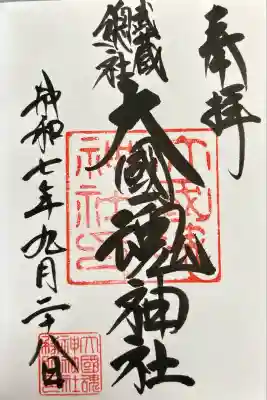 奉拝
武蔵
総社
大國魂神社
令和七年九月二十八日
大國魂
神社印
大國魂
神社